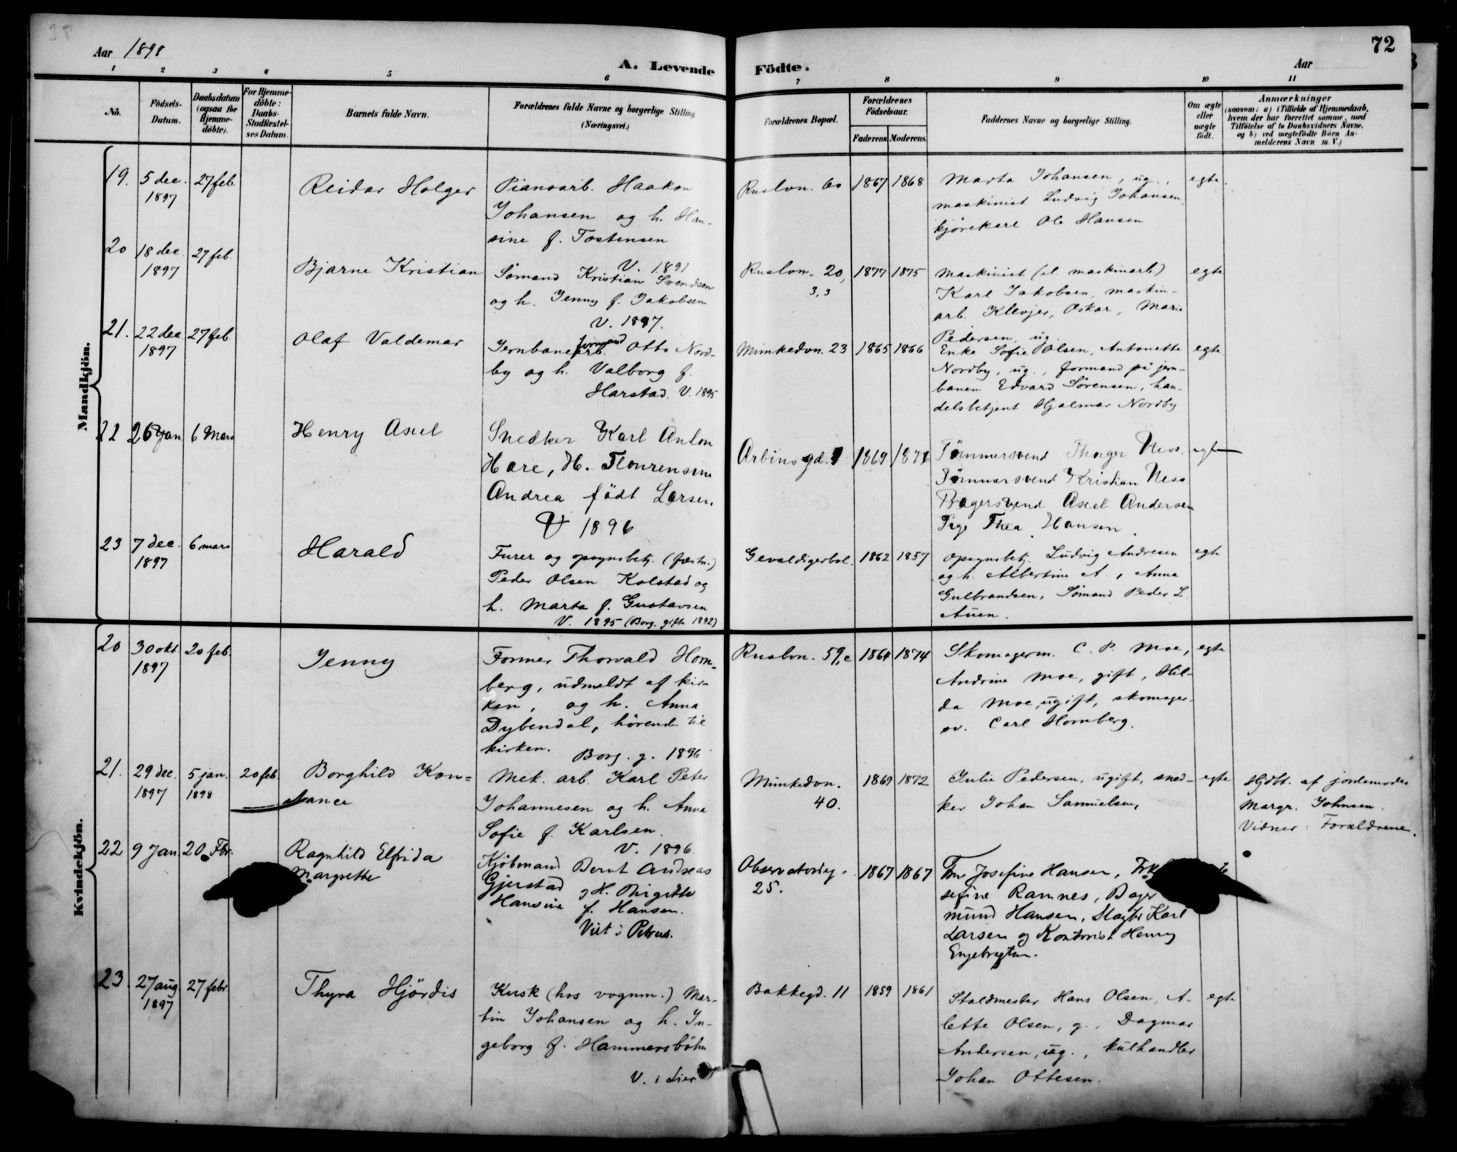 Aar 1898
A. Levende Födte.
Aar
72
1 2 3 4 5 6 7 8 9 10 11
No.
Födsels-Datum.
Daabsdatum (ogsaa for Hjemme-döbte).
For Hjemme-döbte: Daabs-Stadfæstel-ses Datum.
Barnets fulde Navn.
Forældrenes fulde Navne og borgerlige Stilling (Næringsvei).
Forældrenes Bopæl.
Forældrenes Födselsaar.
Faderens Moderens
Faddernes Navne og borgerlige Stilling.
Om ægte eller uægte födt.
Anmærkninger
(saasom: a) i Tilfælde af Hjemmedaab,
hvem der har forrettet samme, med
Tilföielse af to Daabsvidners Navne,
og b) ved uægtefödte Börn An-
melderens Navn m. V.)
Mandkjön.
19. 5 dec. 1897 27 feb. Reidar Holger
Pianoarb. Haakon
Johansen og h. Han-
sine f. Tostensen
V. 1891
Ruslvn. 60 1867 1868
Marta Johansen, ug.,
maskinist Ludvig Johansen,
kjörekarl Ole Hansen
egte.
20 18 dec. 1897 27 feb Bjarne Kristian
Sömand Kristian Svendsen
og h. Jenny f. Jakobsen
V. 1897.
Ruslvn. 20, 3,3 1877 1875
Maskinist (el. maskinarb)
Karl Jakobsen, maskin-
arb. Klevjer, Oskar, Marie
Pedersen, ug.
egte
21. 22 dec 1897 27 feb Olaf Valdemar
Jernbanearb. formand Otto Nord-
by og h. Valborg f.
Harstad. V. 1895
Munkedvn. 23 1865 1866
Enke Sofie Olsen, Antonette
Nordby, ug., formand på jern-
banen Edvard Sörensen, han-
delsbetjent Hjalmar Nordby
egte
22 26 Jan 6 Mars Henry Axel
Snedker Karl Anton
Hare, H. Laurensine
Andrea födt Larsen.
V 1896
Arbins gd. 1 1869 1871
Tömmersvend Thorger Ness
Tömmersvend Kristian Ness
Bagersvend Axel Andersen
Pige Thea Hansen
egte
23 7 dec. 1897 6 mars Harald
Furer og opsynsbetj. (fæstn.)
Peder Olsen Kolstad og
h. Marta f. Gustavsen
V. 1895 (Borg. gifte 1892)
Gevaldigerbol. 1862 1857
Opsynsbetj. Ludvig Andresen
og h. Albertine A., Anna
Gulbrandsen, Sömand Peder L.
Auen.
egte
Kvindekjön.
20 30 okt 1897 20 feb Jenny
Former Thorvald Horn-
berg, udmeldt af kir-
ken, og h. Anna
Dybendal, hörende til
kirken. Borg. g. 1896
Ruslvn. 59,c 1869 1874
Skomagerm. C. P. Moe,
Andrine Moe, gift, Hil-
da Moe, ugift, skomager-
sv. Carl Hornberg.
egte
21. 29 dec. 1897 5 jan. 1898 20 feb Borghild Kon-
stance
Mek. arb Karl Peter
Johannesen og h. Anna
Sofie f. Karlsen.
V. 1896
Munkedvn. 40. 1869 1872
Julie Pedersen, ugift, sned-
ker Johan Samuelsen,
egte
Hjdbt. af jordemoder
Margr. Johnsen.
Vidner: Forældrene.
22 9 Jan 20. Fbr. Ragnhild Elfrida
Margrethe
Kjöbmand Bernt Andreas
Gjerstad og H. Birgitte
Hansine f. Hansen.
Viet i Petrus.
Observatorieg. 25. 1867 1867
Fru Josefine Hansen, Frk
sefine Ramnes, Bager
mund Hansen, Slagter Karl
Larsen og Kontorist Henry
Engebregtsen.
23. 27 aug 1897 27 febr Thyra Hjördis
Kusk (hos vognm.) Mar-
tin Johansen og h. In-
geborg f. Hammersböhn
V. i Lier
Bakkegd. 11 1859 1861
Staldmester Hans Olsen, A-
lette Olsen, g., Dagmar
Andersen, ug., kulhandler
Johan Ottesen.
egte